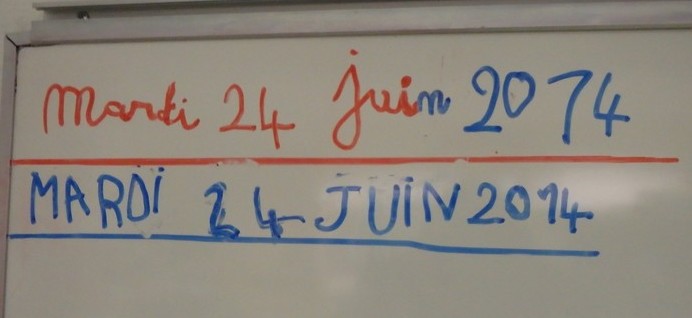 mardi 24 juin 2014
MARDI 24 JUIN 2014